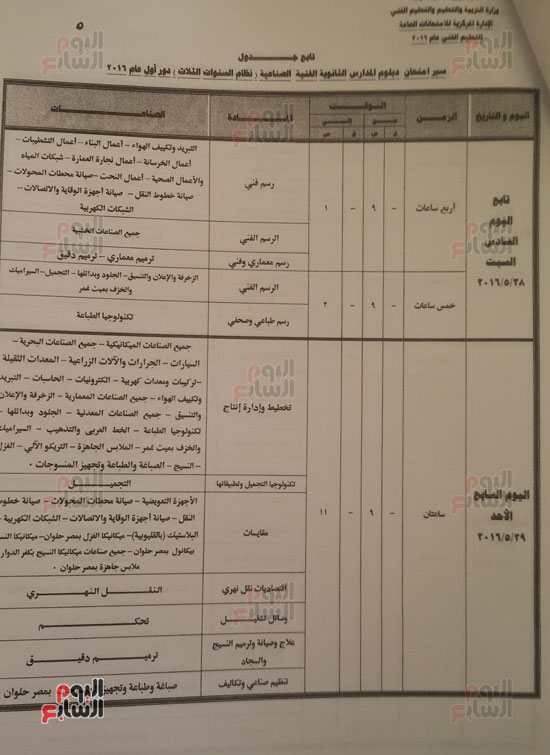 وزارة التربية والتعليم والتعليم الفني
الإدارة المركزية للامتحانات العامة
للتعليم الفني عام ٢٠١٦
٥
تابع جـــدول
سير امتحان دبلوم المدارس الثانوية الفنية الصناعية ( نظام السنوات الثلاث ) دور أول عام ٢٠١٦
اليوم والتاريخ
الزمـن
الـوقـت
مـن
إلى
ق
س
ق
س
المـــادة
الصناعـــات
تابع
اليوم
السادس
السبت
٢٠١٦/٥/٢٨
أربع ساعات
–
٩
–
١
رسم فني
التبريد وتكييف الهواء – أعمال البناء – أعمال التشطيبات –
أعمال الخرسانة – أعمال نجارة العمارة – شبكات المياه
والأعمال الصحية – أعمال النحت – صيانة محطات المحولات –
صيانة خطوط النقل – صيانة أجهزة الوقاية والاتصالات –
الشبكات الكهربية
الرسم الفني
جميع الصناعات الخشبية
رسم معماري وفني
ترميم معماري – ترميم دقيق
خمس ساعات
–
٩
–
٢
الرسم الفني
الزخرفة والإعلان والتنسيق – الجلود وبدائلها – التجميل – السيراميك
والخزف بميت غمر
رسم طباعي وصحفي
تكنولوجيا الطباعة
اليوم السابع
الأحد
٢٠١٦/٥/٢٩
ساعتان
–
٩
–
١١
تخطيط وإدارة إنتاج
جميع الصناعات الميكانيكية – جميع الصناعات البحرية –
السيارات – الجرارات والآلات الزراعية – المعدات الثقيلة
– تركيبات ومعدات كهربية – الكترونيات – الحاسبات – التبريد
وتكييف الهواء – جميع الصناعات المعمارية – الزخرفة والإعلان
والتنسيق – جميع الصناعات المعدنية – الجلود وبدائلها –
تكنولوجيا الطباعة – الخط العربي والتذهيب – السيراميك
والخزف بميت غمر – الملابس الجاهزة – التريكو الآلي – الغزل
– النسيج – الصباغة والطباعة وتجهيز المنسوجات .
تكنولوجيا التجميل وتطبيقاتها
التجميـــل
مقايسات
الأجهزة التعويضية – صيانة محطات المحولات – صيانة خطوط
النقل – صيانة أجهزة الوقاية والاتصالات – الشبكات الكهربية –
البلاستيك (بالقليوبية) – ميكانيكا الغزل بمصر حلوان – ميكانيكا
بيكانول بمصر حلوان – جميع صناعات ميكانيكا النسيج بكفر الدوار
ملابس جاهزة بمصر حلوان .
اقتصاديات نقل نهري
النقـــل النهـــري
وسائل تشغيـــل
تحكـــم
علاج وصيانة وترميم النسيج
والسجاد
ترميـــم دقيق
تنظيم صناعي وتكاليف
صباغة وطباعة وتجهيز بمصر حلوان
اليوم السابع